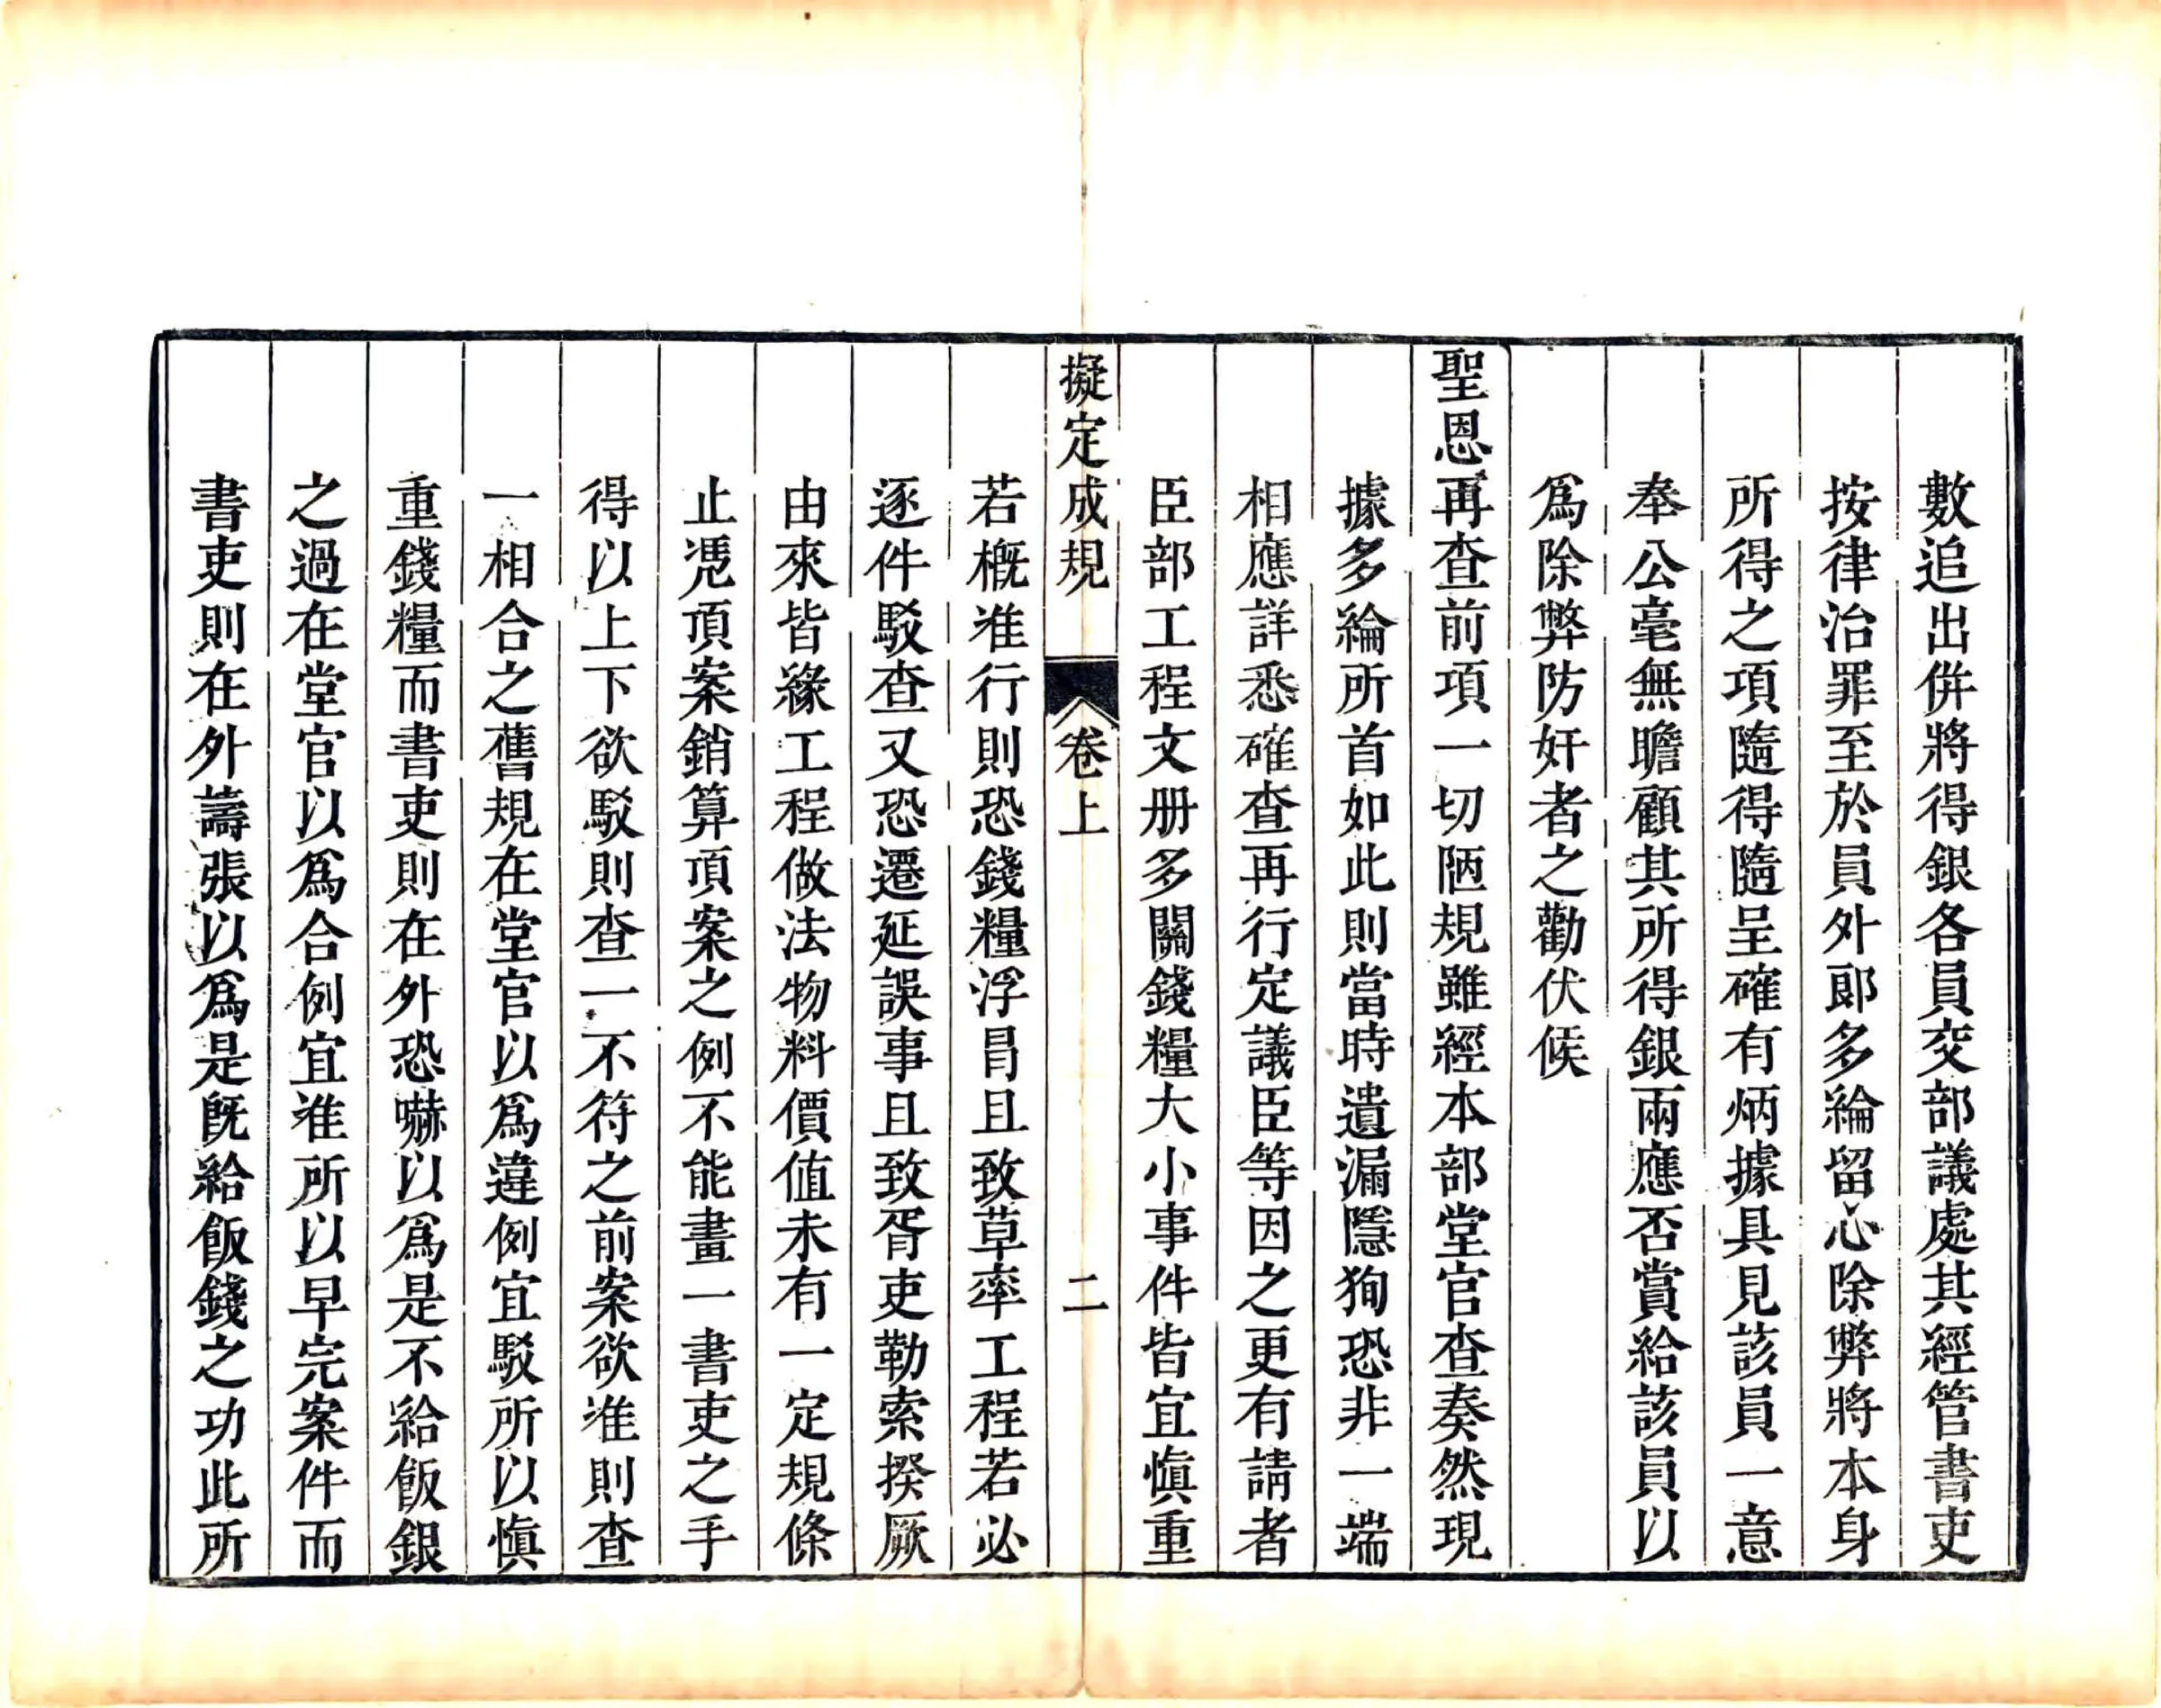 數追出併將得銀各員交部議處其經管書吏
按律治罪至於員外郎多綸留心除弊將本身
所得之項隨得隨呈確有炳據具見該員一意
奉公毫無瞻顧其所得銀兩應否賞給該員以
爲除弊防奸者之勸伏候
聖恩再查前項一切陋規雖經本部堂官查奏然現
據多綸所首如此則當時遺漏隱狥恐非一端
相應詳悉確查再行定議臣等因之更有請者
臣部工程文册多關錢糧大小事件皆宜愼重
擬定成規 卷上 二
若槪准行則恐錢糧浮冒且致草率工程若必
逐件駁查又恐遷延誤事且致胥吏勒索揆厥
由來皆緣工程做法物料價值未有一定規條
止凴頂案銷算頂案之例不能畫一書吏之手
得以上下欲駁則查一不符之前案欲准則查
一相合之舊規在堂官以爲違例宜駁所以愼
重錢糧而書吏則在外恐嚇以爲是不給飯銀
之過在堂官以爲合例宜准所以早完案件而
書吏則在外譸張以爲是旣給飯錢之功此所